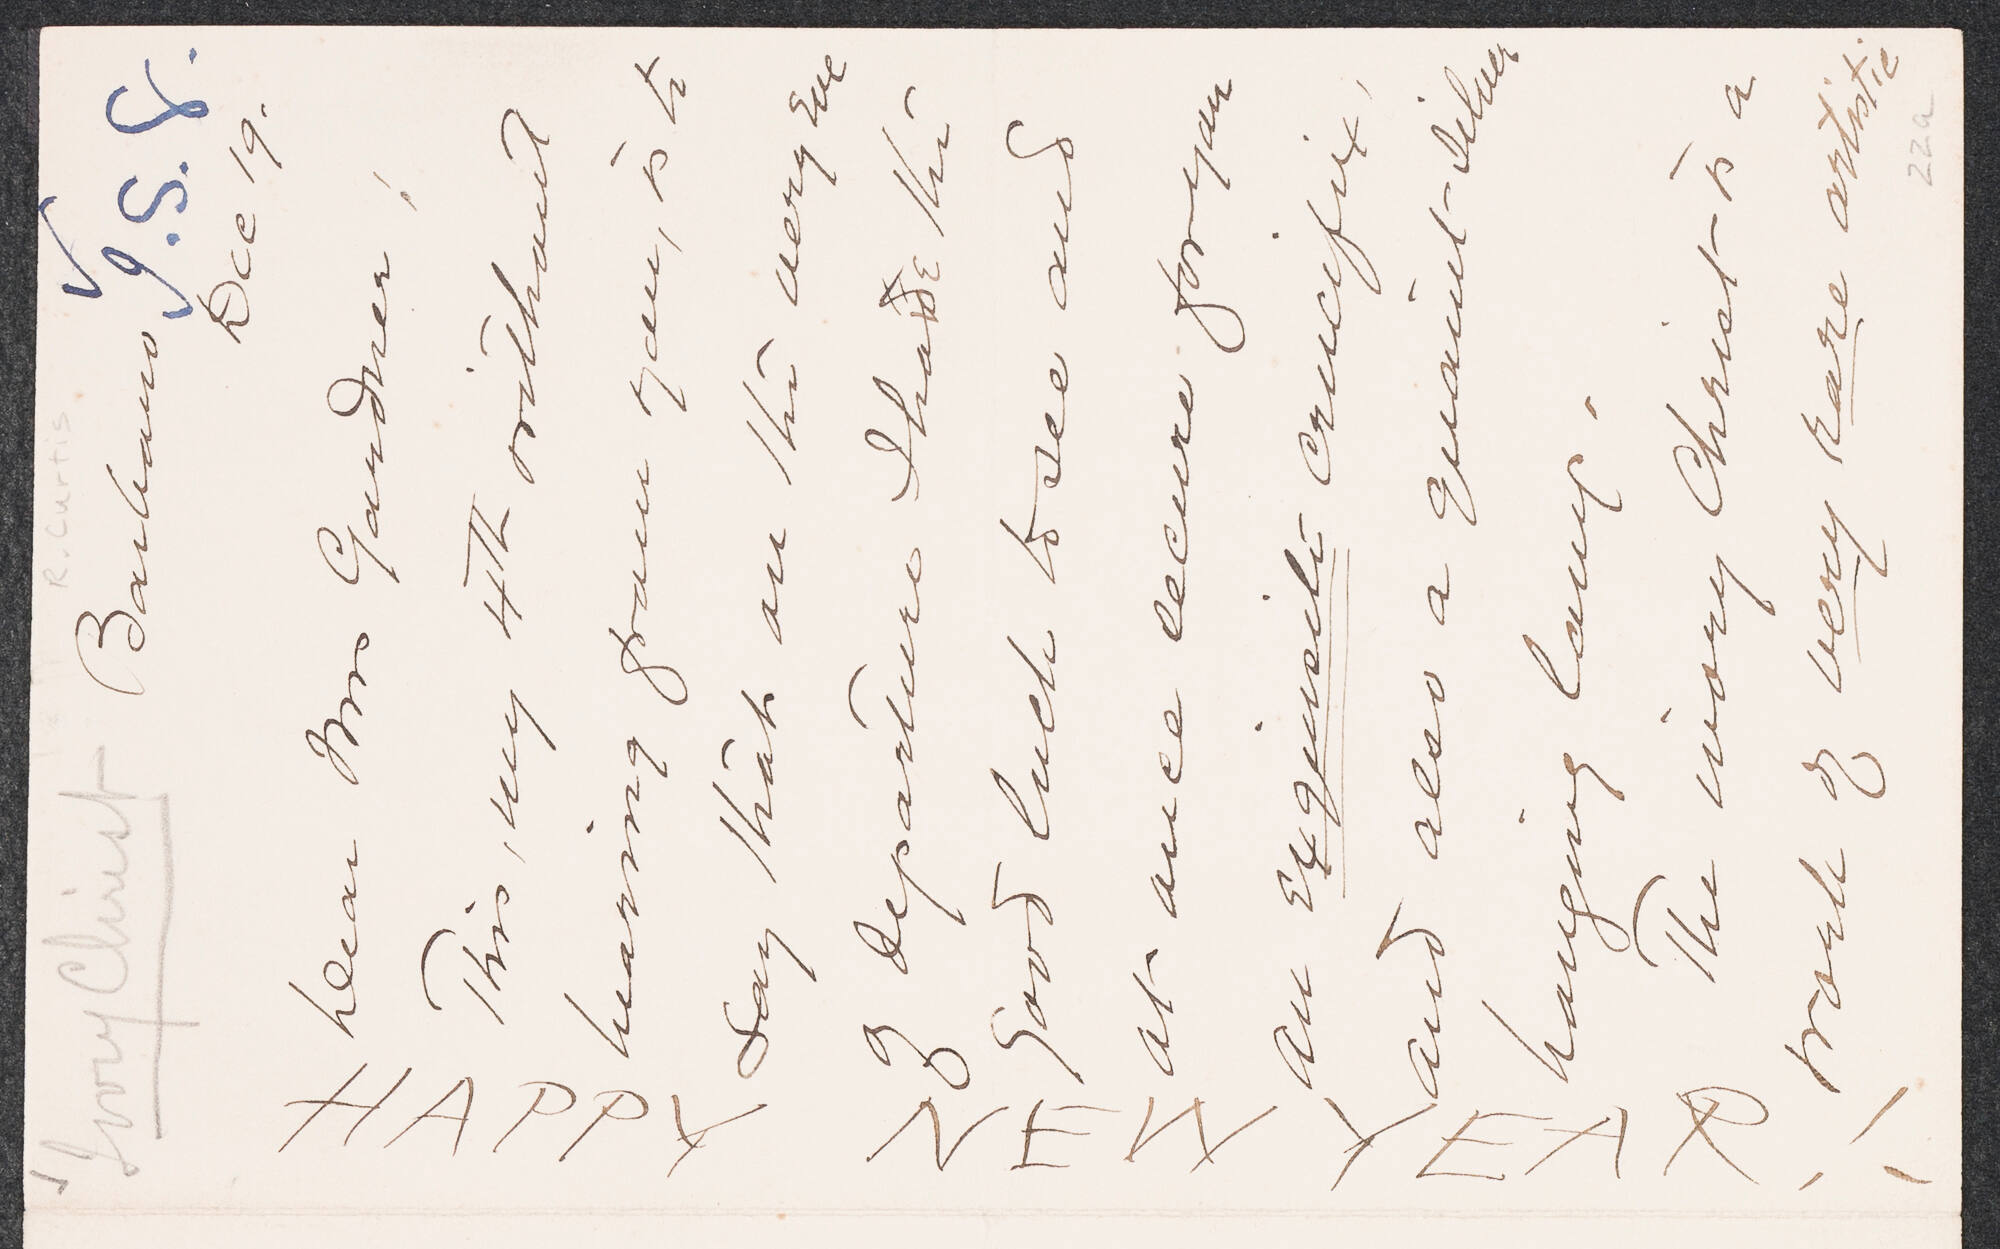 ✓ Ivory Christ
R. Curtis
Barbaro
I.S.G.
Dec 19.
Dear Mrs Gardner!
This, my 4th without
hearing from you, is to
say that on the very Eve
of departure I had the
good luck to see and
at once secure for you
an Exquisite crucifix,
and also a quaint silver
hanging lamp!
The ivory Christ is a
work of very rare artistic
HAPPY NEW YEAR !!
22a